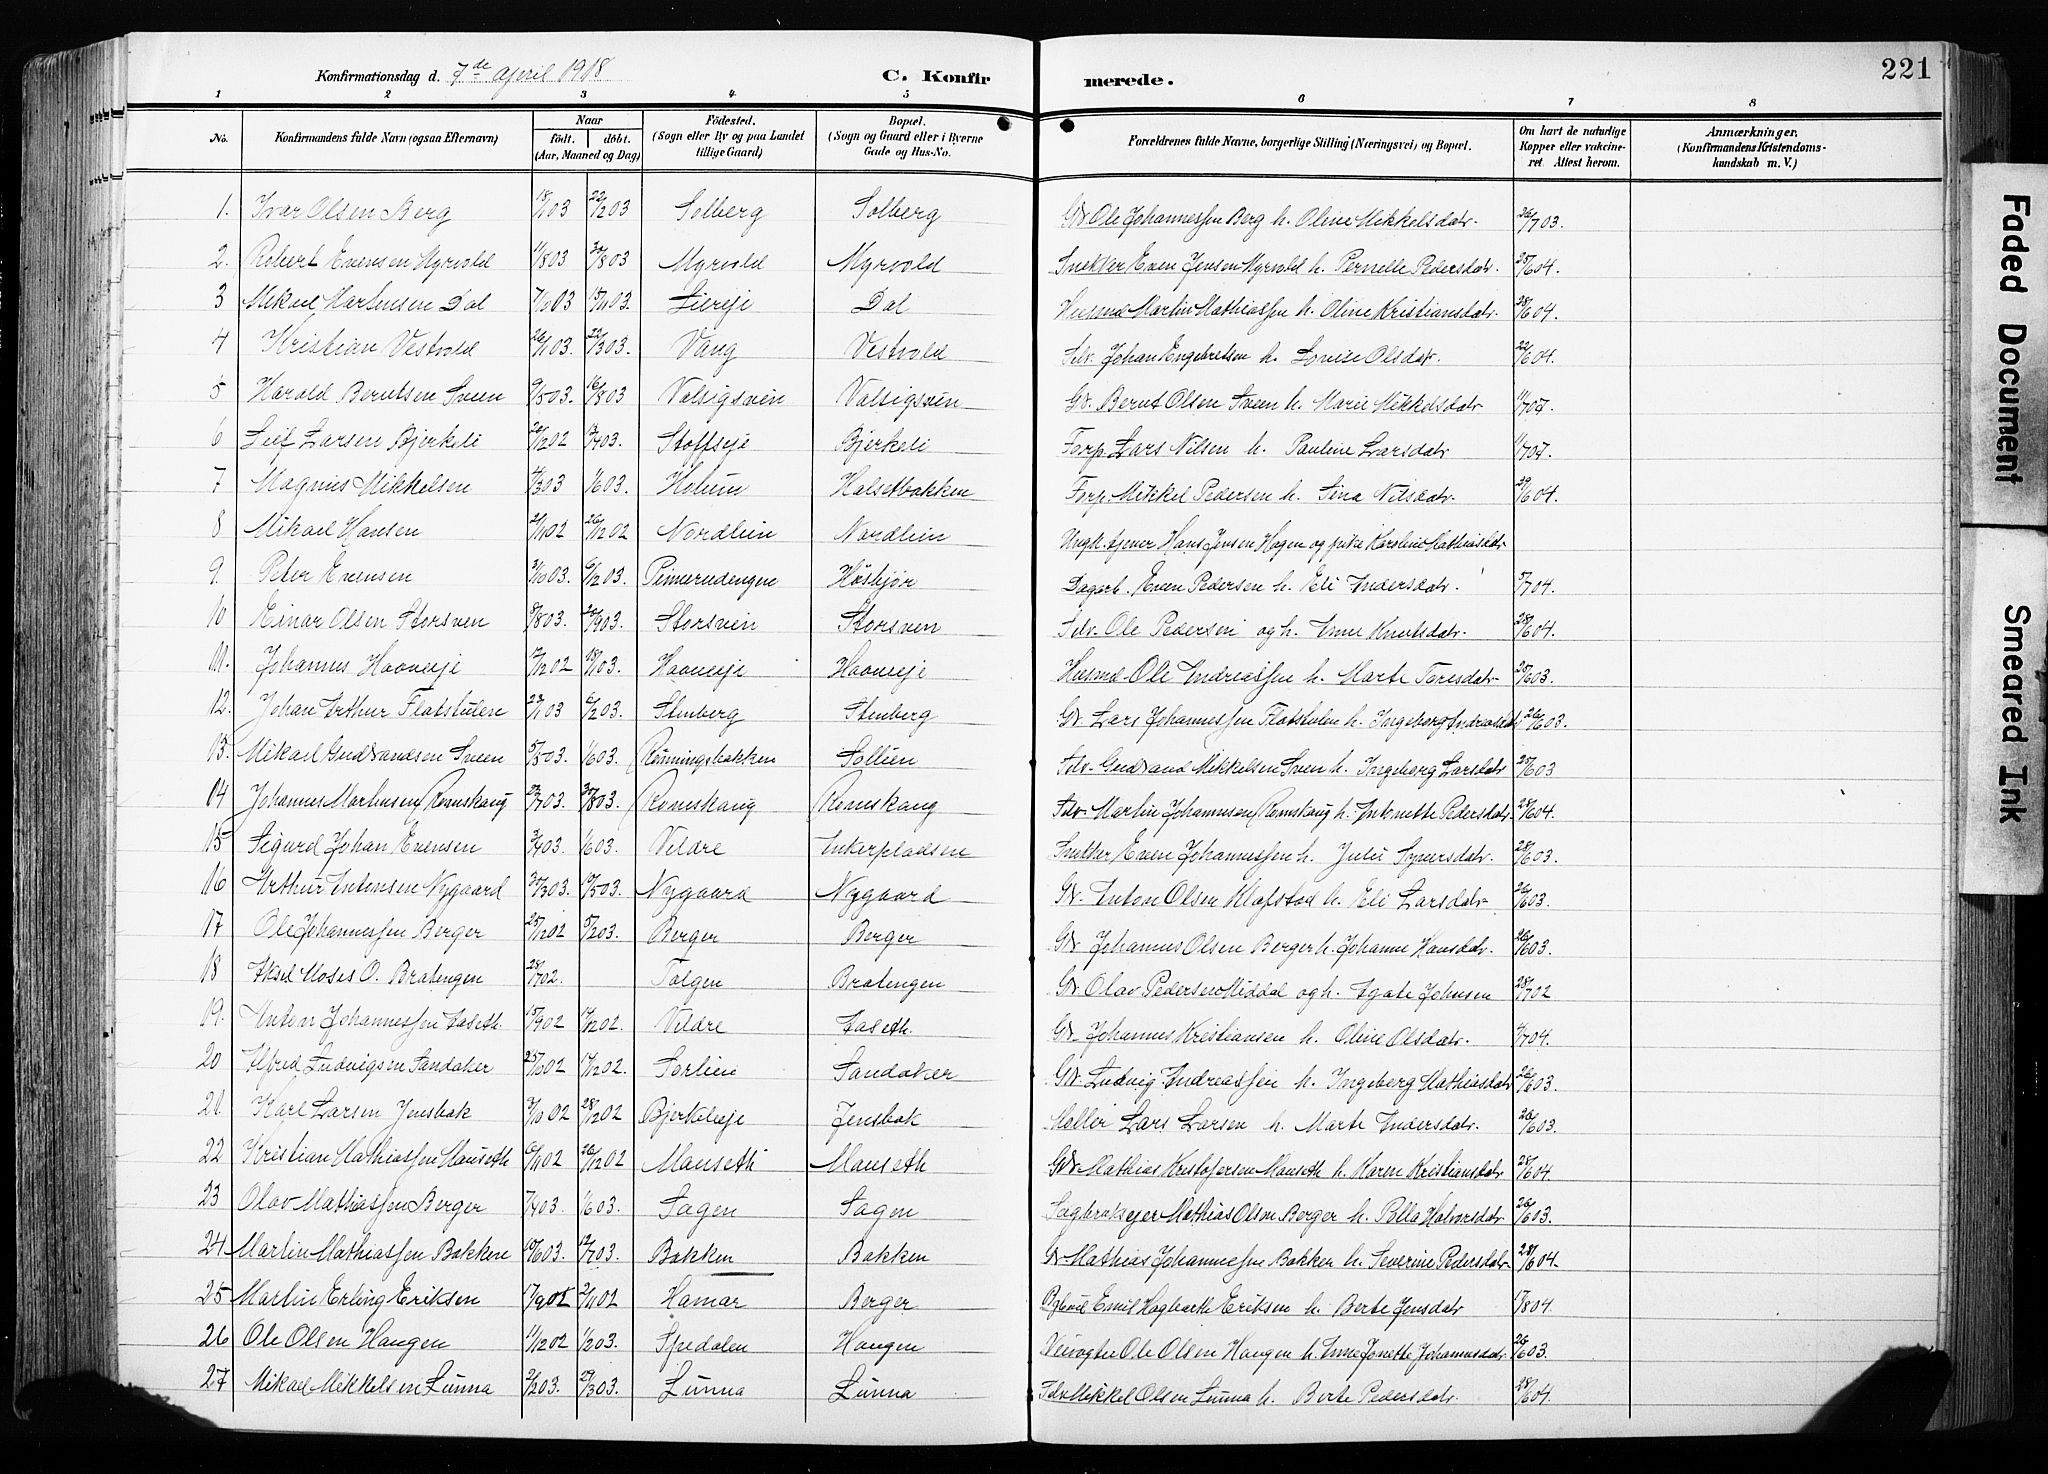 Konfirmationsdag d. 7de April 1918 C. Konfirmerede. 221
1 2 3 4 5 6 7 8
No. Konfirmandens fulde Navn (ogsaa Efternavn) Naar født. døbt. (Aar, Maaned og Dag) Fødested. (Sogn eller By og paa Landet tillige Gaard) Bopæl. (Sogn og Gaard eller i Byerne Gade og Hus-No. Forældrenes fulde Navne, borgerlige Stilling (Næringsvei) og Bopæl. Om havt de naturlige Kopper eller vakcineret. Attest herom. Anmærkninger. (Konfirmandens Kristendomskundskab m. V.)
1. Ivar Olsen Berg 18/1 03 22/2 03 Solberg Solberg Gbr Ole Johannessen Berg h. Oline Mikkelsdatr. 26/7 03.
2. Robert Evensen Myrvold 11/8 03 30/8 03 Myrvold Myrvold Snekker Even Jensen Myrvold h. Pernelle Pedersdatr. 25/6 04.
3 Mikael Martinsen Dal 7/10 03 15/11 03. Dal Husmd Martin Mathiassen h. Oline Kristiansdatr. 28/6 04.
4 Kristian Vestvold 26/1 03. 22/3 03. Vang Vestvold Selv. Johan Engebretsen h. Lovise Olsdatr. 22/6 04.
5 Harald Berntsen Sveen 9/5 03. 16/8 03 Valsigsvein Valsigsvein Gbr. Bernt Olsen Sveen h. Marie Mikkelsdatr
6 Leif Larsen Bjerkeli 26/12 02 Stoffseje Bjerkeli Forp. Lars Nilsen h. Pauline Larsdatr
7 Magnus Mikkelsen 4/3 03 1/6 03. Holum Halsetbakken Forp. Mikkel Pedersen h. Sina Nilsdatr. 29/6 04.
8 Mikael Hansen 21/11 02 26/12 02 Nordlien Nordlien Ungk. tjener Hans Jensen Hagen og pike Karoline Mathisdatr
9. Peter Evensen 31/10 03. 6/12 03. Pinnerudengen Høsbjør Dagarb. Even Pedersen h. Eli Andersdatr. 5/7 04.
10 Einar Olsen Storsven 8/8 03. 20/9 03. Storsvein Storsven Selv. Ole Pedersen og h. Anne Knutsdatr. 28/6 04.
11. Johannes Haaveeje 12/12 02 18/1 03. Haaveeje Haaveeje Husmd. Ole Andreassen h. Marte Toresdatr 25/6 03.
12. Johan Arthur Flatstulen 23/1 03 6/2 03. Stenberg Stenberg Gbr. Lars Johannessen Flatstulen h. Ingeborg Andreasdatr 26/6 03.
13. Mikael Gudbrandsen Sveen 5/5 03. 1/6 03. Rønningsbakken Sollien Selv. Gudbrand Mikkelsen Sveen h. Ingeborg Larsdatr 25/6 03
14 Johannes Martinsen Romskaug 22/7 03. 30/8 03. Romskaug Romskaug Selv. Martin Johannesen Romskaug h. Antonette Pedersdatr. 28/6 04.
15 Sigurd Johan Evensen 3/4 03. 1/6 03. Veldre Ankerpladsen Snekker Even Johannessen h. Julie Syversdatr. 28/6 03.
16 Arthur Antonsen Nygaard 30/3 03. 10/5 03. Nygaard Nygaard Gbr. Anton Olsen Klafstad h. Eli Larsdatr 26/6 03.
17 Ole Johannessen Berger 25/12 02 5/2 03. Berger Berger Gbr. Johannes Olsen Berger h. Johanne Hansdatr. 26/6 03.
18 Aksel Moses O. Bratengen 28/7 02. Tolgen Bratengen Gbr Olav Pedersen Middal og h. Agate Johnsen 28/7 02
19. Anton Johannessen Aaseth 15/9 02 14/12 02. Veldre Aaseth. Gbr. Johannes Kristiansen h. Oline Olsdatr. 4/7 04.
20 Alfred Ludvigsen Sandaker 25/10 02 14/12 02. Sorlien Sandaker Gbr. Ludvig Andreassen h. Ingeborg Mathiasdatr 26/6 03.
21. Karl Larsen Jensbak 3/11 02 28/12 02 Bjerkeleje Jensbak Møller Lars Larsen h. Marte Andersdatr. 26/6 03.
22 Kristian Mathiassen Manseth 6/11 02 26/12 02 Manseth Manseth Gbr Mathias Kristofersen Manseth h. Karen Kristiansdatr 28/6 04.
23 Olav Mathiassen Berger 7/4 03. 1/6 03. Sagen Sagen Sagbrukseyer Mathias Olsen Berger h. Pella Halvorsdatr. 26/6 03.
24 Martin Mathiassen Bakken 10/6 03. 12/7 03. Bakken Bakken Gbr. Mathias Johannessen Bakken h. Severine Pedersdatr 28/6 04.
25 Martin Erling Eriksen 17/9 02 2/11 02 Hamar Berger Emil Hagbarth Eriksen h. Berte Jensdatr 17/8 04.
26 Ole Olsen Haugen 11/12 02 1/2 03. Spedalen Haugen Veivogter Ole Olsen Haugen h. Anne Jonette Johannesdatr. 26/6 03.
27 Mikael Mikkelsen Lunna 2/2 03. 29/3 03. Lunna Lunna Selv Mikkel Olsen Lunna h. Berte Pedersdatr. 28/6 04.
Faded Document
Smeared Ink